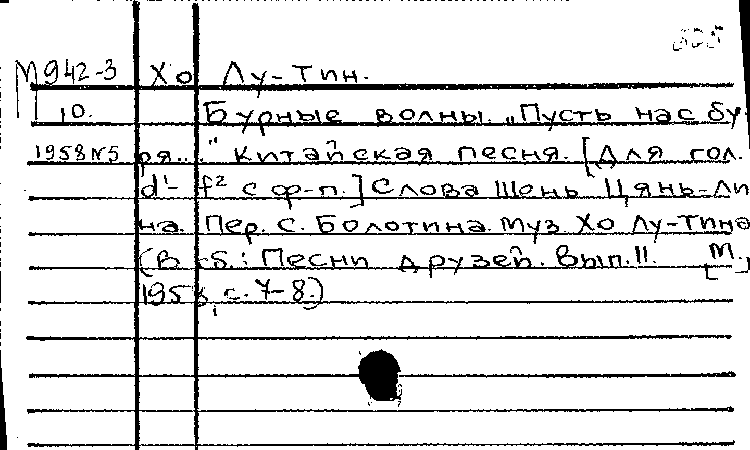 М942-3 Хо Лу-Тин.
10. Бурные волны. „Пусть нас бу-
1958 №5 ря..." Китайская песня. [Для гол.
d¹- f² с ф-п.] Слова Шень Цянь-Ли
на. Пер. С. Болотина. Муз. Хо Лу-Тина
(В сб.: Песни друзей. Вып. II. [М.,
1958, с. 7-8.)